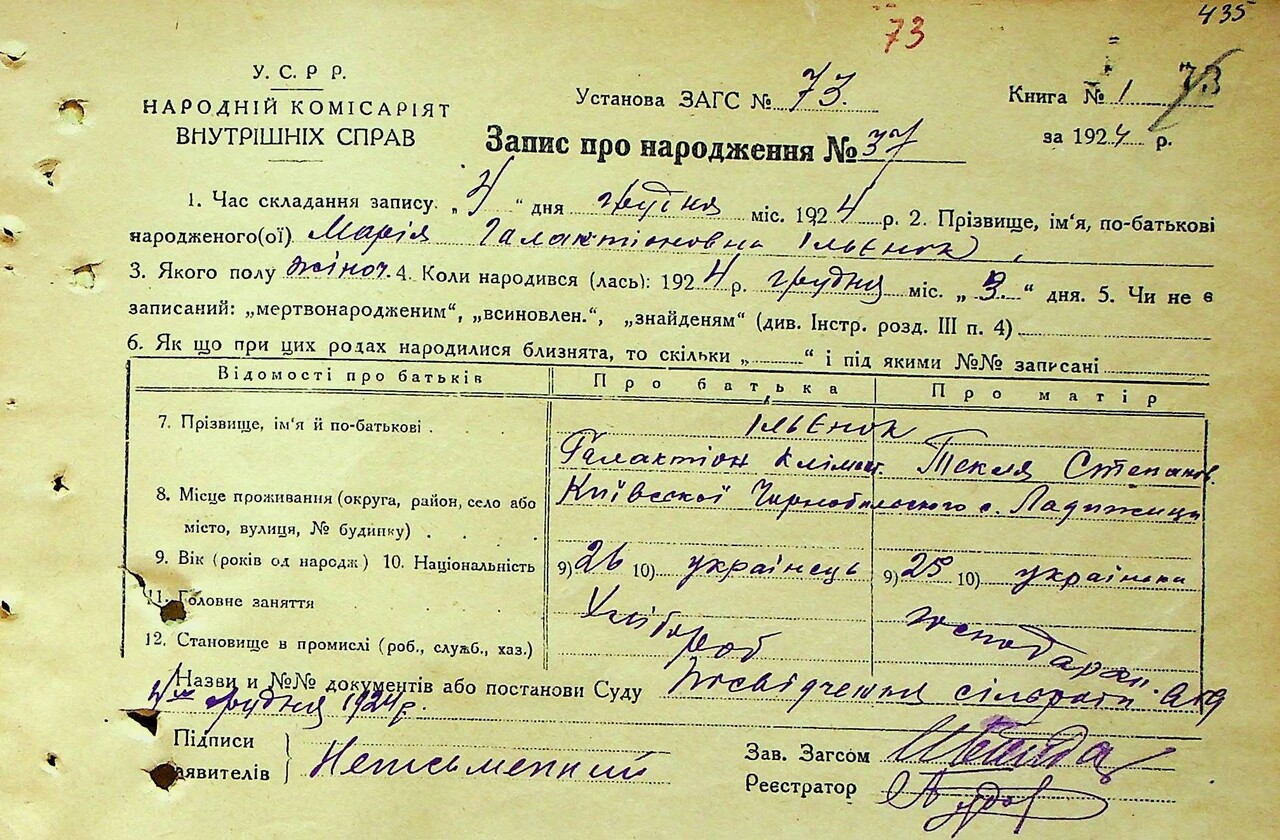 435
73
У. С. Р Р.
НАРОДНІЙ КОМІСАРІЯТ
ВНУТРІШНІХ СПРАВ
Установа ЗАГС № 73.
Книга № 1 73
за 1924 р.
Запис про народження № 37
1. Час складання запису „4“ дня грудня міс. 1924 р. 2. Прізвище, ім'я, по-батькові
народженого(ої) Марія Галактіоновна Ільєнок
3. Якого полу жіноч. 4. Коли народився (лась): 1924 р. грудня міс. „3.“ дня. 5. Чи не є
записаний: „мертвонародженим“, „всиновлен.“, „знайденям“ (див. Інстр. розд. III п. 4)
6. Як що при цих родах народилися близнята, то скільки „ “ і під якими №№ записані
Відомості про батьків Про батька Про матір
7. Прізвище, ім'я й по-батькові . Ільєнок
Галактіон Клімен. Текля Степанов.
8. Місце проживання (округа, район, село або Київської Чорнобильського с. Ладижици
місто, вулиця, № будинку) .
9. Вік (років од народж) 10. Національність 9) 26 10) українець 9) 25 10) українка
11. Головне заняття Хлібороб господарк.
12. Становище в промислі (роб., служб., хаз.)
Назви и №№ документів або постанови Суду Посвідчення сільради
4го грудня 1924 р.
Підписи
заявителів } Неписьменний
Зав. Загсом
Реєстратор